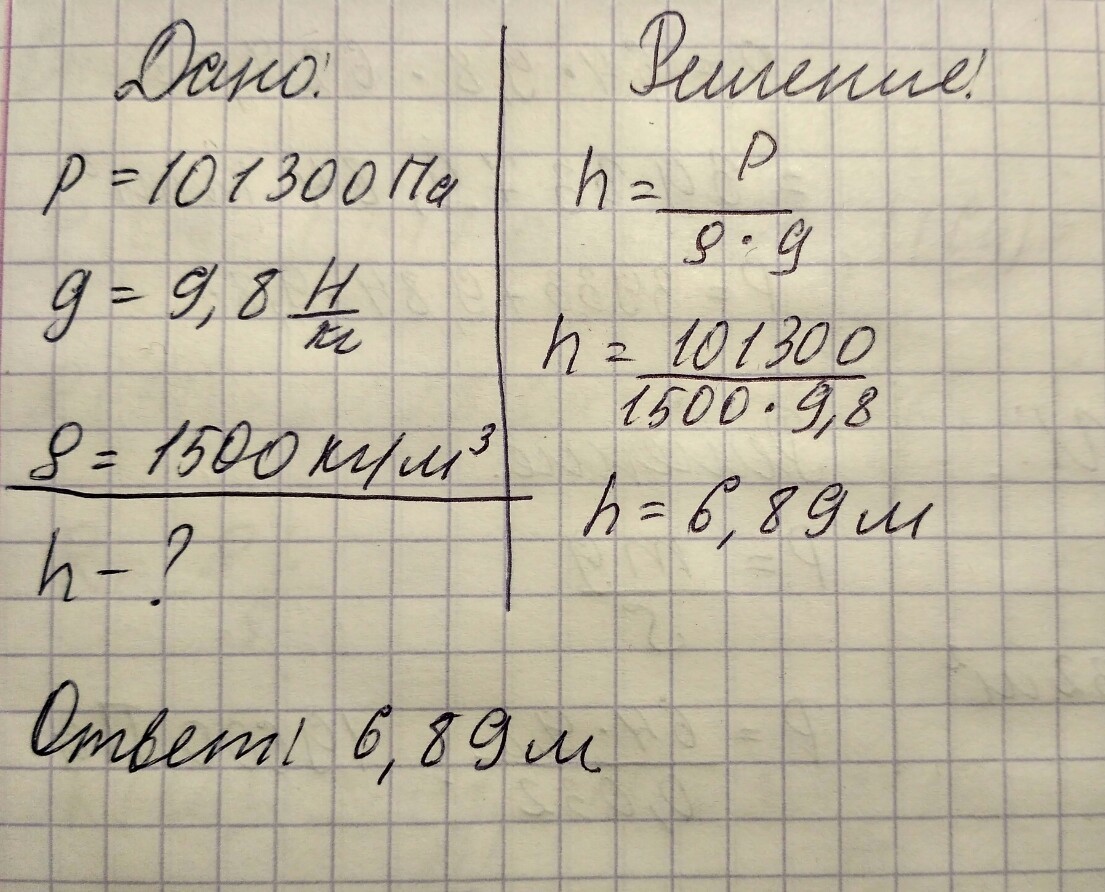 Дано:
p = 101300 Па
g = 9,8 Н/кг
ρ = 1500 кг/м³
h - ?
Решение:
h = p / ρ · g
h = 101300 / 1500 · 9,8
h = 6,89 м
Ответ: 6,89 м